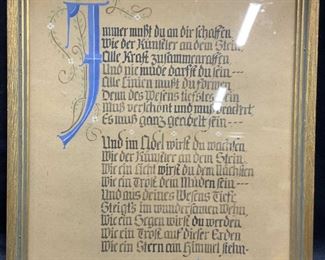 Immer mußt du an dir schaffen
Wie der Künstler an dem Stein,
Alle Kraft zusammenraffen,
Und nie müde darfst du sein ---
Alle Linien mußt du formen,
Denn des Wesens tiefstes Sein
Muß verschönt und muß
Es muß ganz geadelt sein ---
Und im Adel wirst du wachsen
Wie der Künstler an dem Stein,
Wie ein Licht wirst du dem Nächsten
Wie ein Trost dem Müden sein ---
Und aus deines Wesens Tiefe
Steigt's im wundersamen Wehn,
Wie ein Segen wirst du werden
Wie ein Trost auf dieser Erden
Wie ein Stern am Himmel stehn.